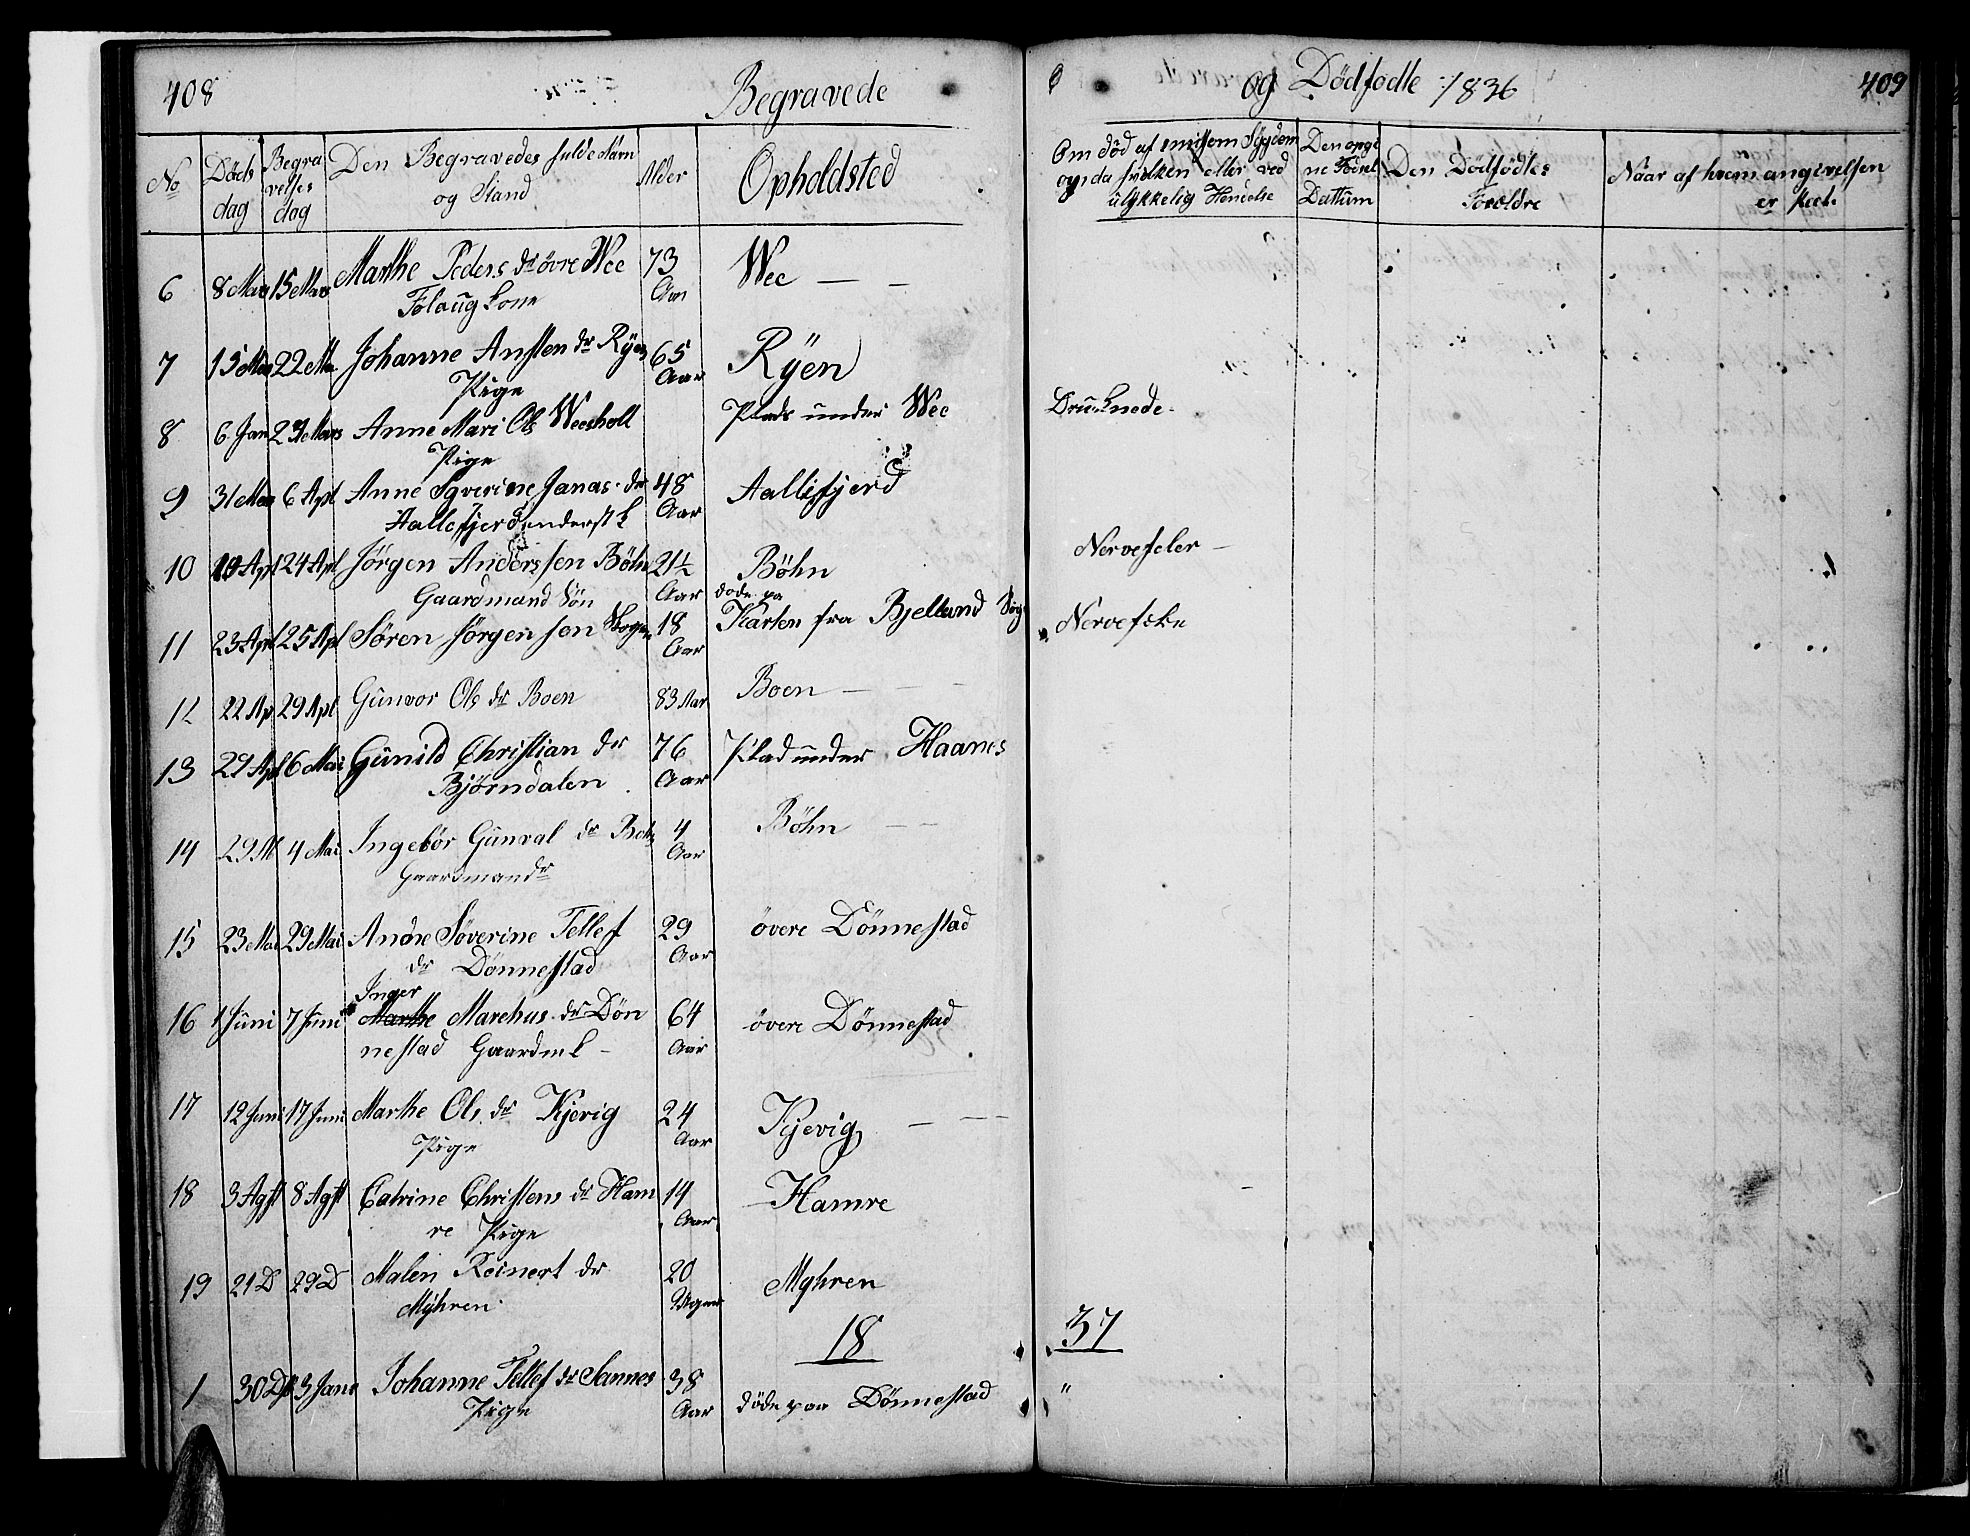 408
Begravede
og Dödfödte 1836
409
No
Döds dag
Begravelses dag
Den Begravedes fulde Navn og Stand
Alder
Opholdsted
Om död af smitsom Sygdom og da hvilken eller ved ulykkelig Hendelse
Den opgivne Födsel Dattum
Den Dödfödtes Forældre
Naar af hvem angivelsen er skeet
6 8 Mars 15 Mars Marthe Peders dr övre Wee 73 Wee
Folaugkone Aar
7 15 Mars 22 Mar Johanne Ansten dr Ryen 65 Ryen
Pige Aar
8 6 Jan Mars Anne Mari Ols Weesholt Plads under Wee Drucknede
Pige
9 31 Mars 6 Apl Anne Syverine Janas dr 48 Aallefjerd
Aallefjerd Aar
10 Apl 24 Apl Jörgen Anderssen Böhn 21½ Böhn Nervefeber
Gaardmand Sön Aar döde pa
11 23 Apl 25 Apl Sören Jörgensen 18 fra Bjellund Sog
Aar
12 22 Apl 29 Apl Gunvor Ols dr Boen 83 Aar Boen
13 29 Apl 6 Mai Gunild Christian dr 76 Plad under Haanes
Björndalen Aar
14 29 4 Mai Ingebör Gunval dr 4 Böhn
Gaardmand dr Aar
15 23 Mai 29 Mai Andre Söverine Tellef 29 övere Dönnestad
dr Dönnestad Aar
Inger
16 1 Juni 7 Juni Marthe Marchus dr Dön 64 övere Dönnestad
nestad Gaardm k Aar
17 12 Juni 17 Juni Marthe Ols dr Kjevig 24 Kjevig
Pige Aar
18 3 Agst 8 Agst Catrine Christens dr Ham 14 Hamre
re Pige Aar
19 21 D 29 D Malen Reinert dr 20 Myhren
Myhren Uger
18
37
1 30 Johanne Tellef dr Sannes 38 döde paa Dönnestad "
Pige Aar